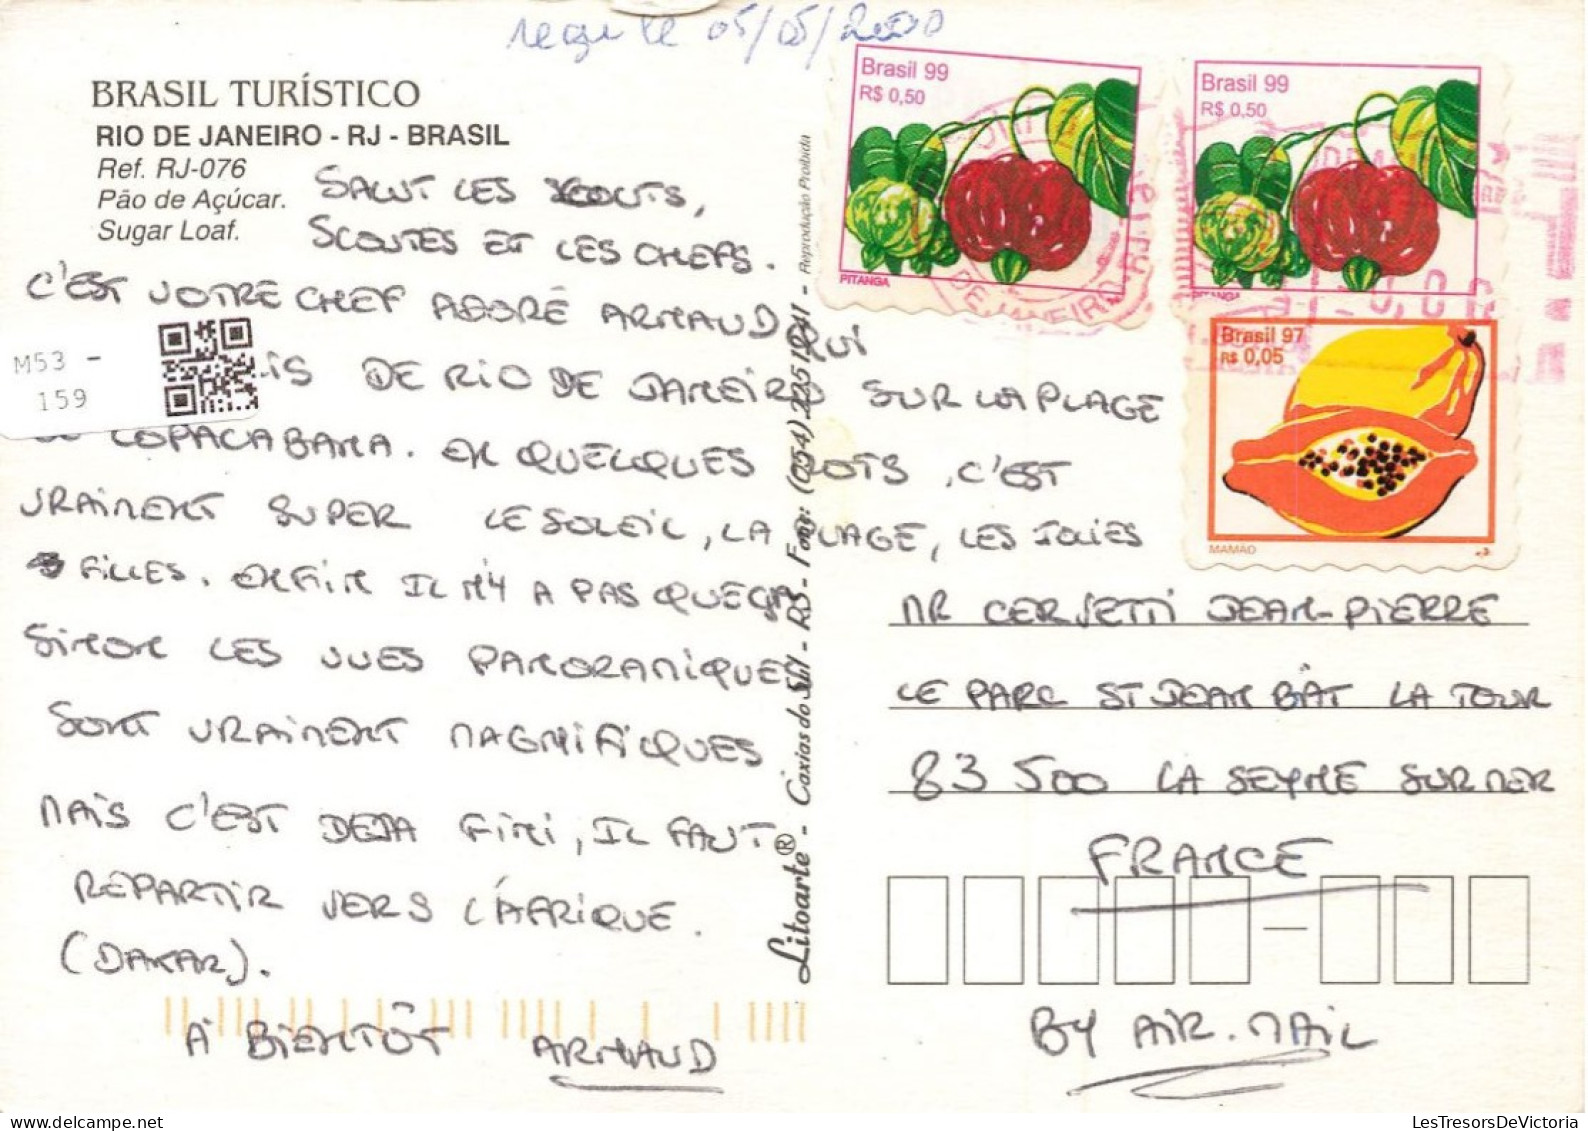 reçu le 05/05/2000
BRASIL TURÍSTICO
RIO DE JANEIRO - RJ - BRASIL
Ref. RJ-076
Pão de Açúcar.
Sugar Loaf.
SALUT LES SCOUTS,
SCOUTES ET LES CHEFS.
C'EST VOTRE CHEF ADORÉ ARNAUD QUI
DE RIO DE JANEIRO SUR LA PLAGE
COPACABANA. EN QUELQUES MOTS, C'EST
VRAIMENT SUPER LE SOLEIL, LA PLAGE, LES JOLIES
FILLES. ENFIN IL N'Y A PAS QUE ÇA
SINON LES VUES PANORAMIQUES
SONT VRAIMENT MAGNIFIQUES
MAIS C'EST DEJA FINI, IL FAUT
REPARTIR VERS L'AFRIQUE.
(DAKAR).
À BIENTÔT ARNAUD
M53 -
159
Litoarte® - Caxias do Sul - RS - Fone: (054) 225 1941 - Reprodução Proibida
Brasil 99
R$ 0,50
PITANGA
Brasil 99
R$ 0,50
PITANGA
Brasil 97
R$ 0,05
MAMAO
RIO DE JANEIRO
MR CERVETTI JEAN-PIERRE
LE PARC ST JEAN BÂT LA TOUR
83 500 LA SEYNE SUR MER
FRANCE
BY AIR.MAIL
LesTresorsDeVictoria